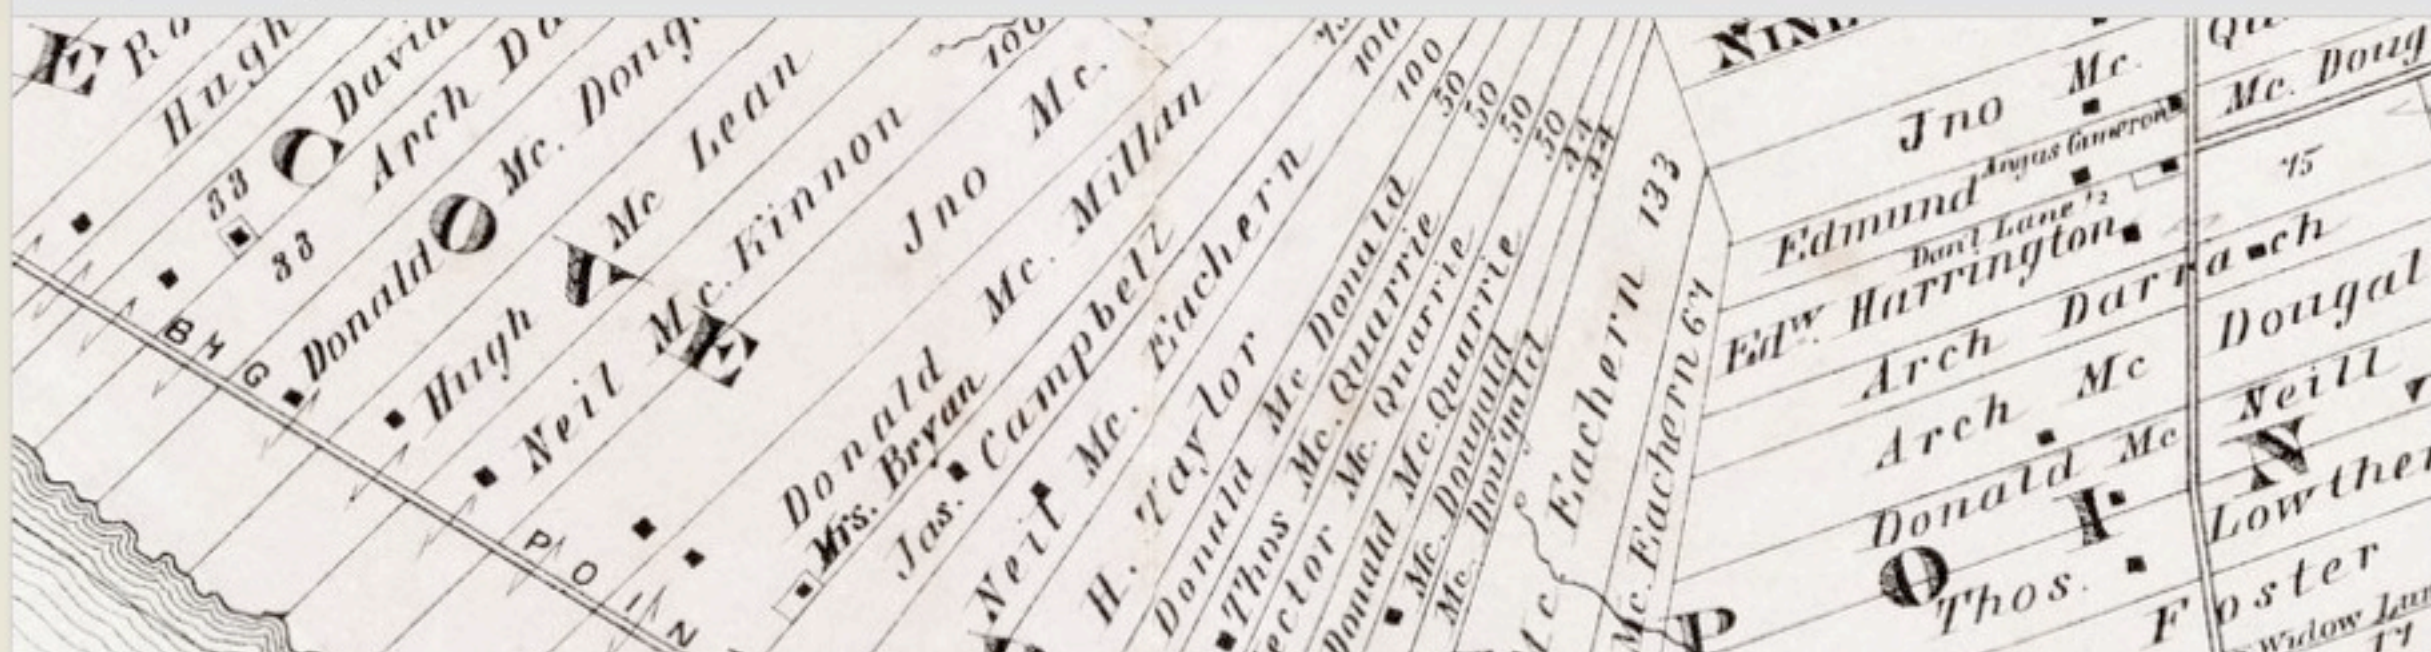 E
Hugh
David
33
Arch
33
Donald Mc. Doug
C O V E
Hugh Mc Lean
Neil Mc. Kinnon
100
Jno Mc.
Donald Mc. Millan
Mrs. Bryan
Jas. Campbell
Neil Mc. Eachern
100
H. Taylor
100
Donald Mc Donald
50
Thos Mc. Quarrie
50
ector Mc. Quarrie
50
Donald Mc. Quarrie
50
Mc. Dougald
44
Mc. Dougald
44
Mc Eachern 133
Mc. Eachern 67
BMG
POIN
Jno Mc.
Angus Cameron
Edmund
Don! Lane ½
Edw. Harrington
Arch Darrach
Arch Mc
Donald Mc
Thos.
POIN
Mc. Doug
75
Dougal
Neill
Lowther
Foster
Widow
17